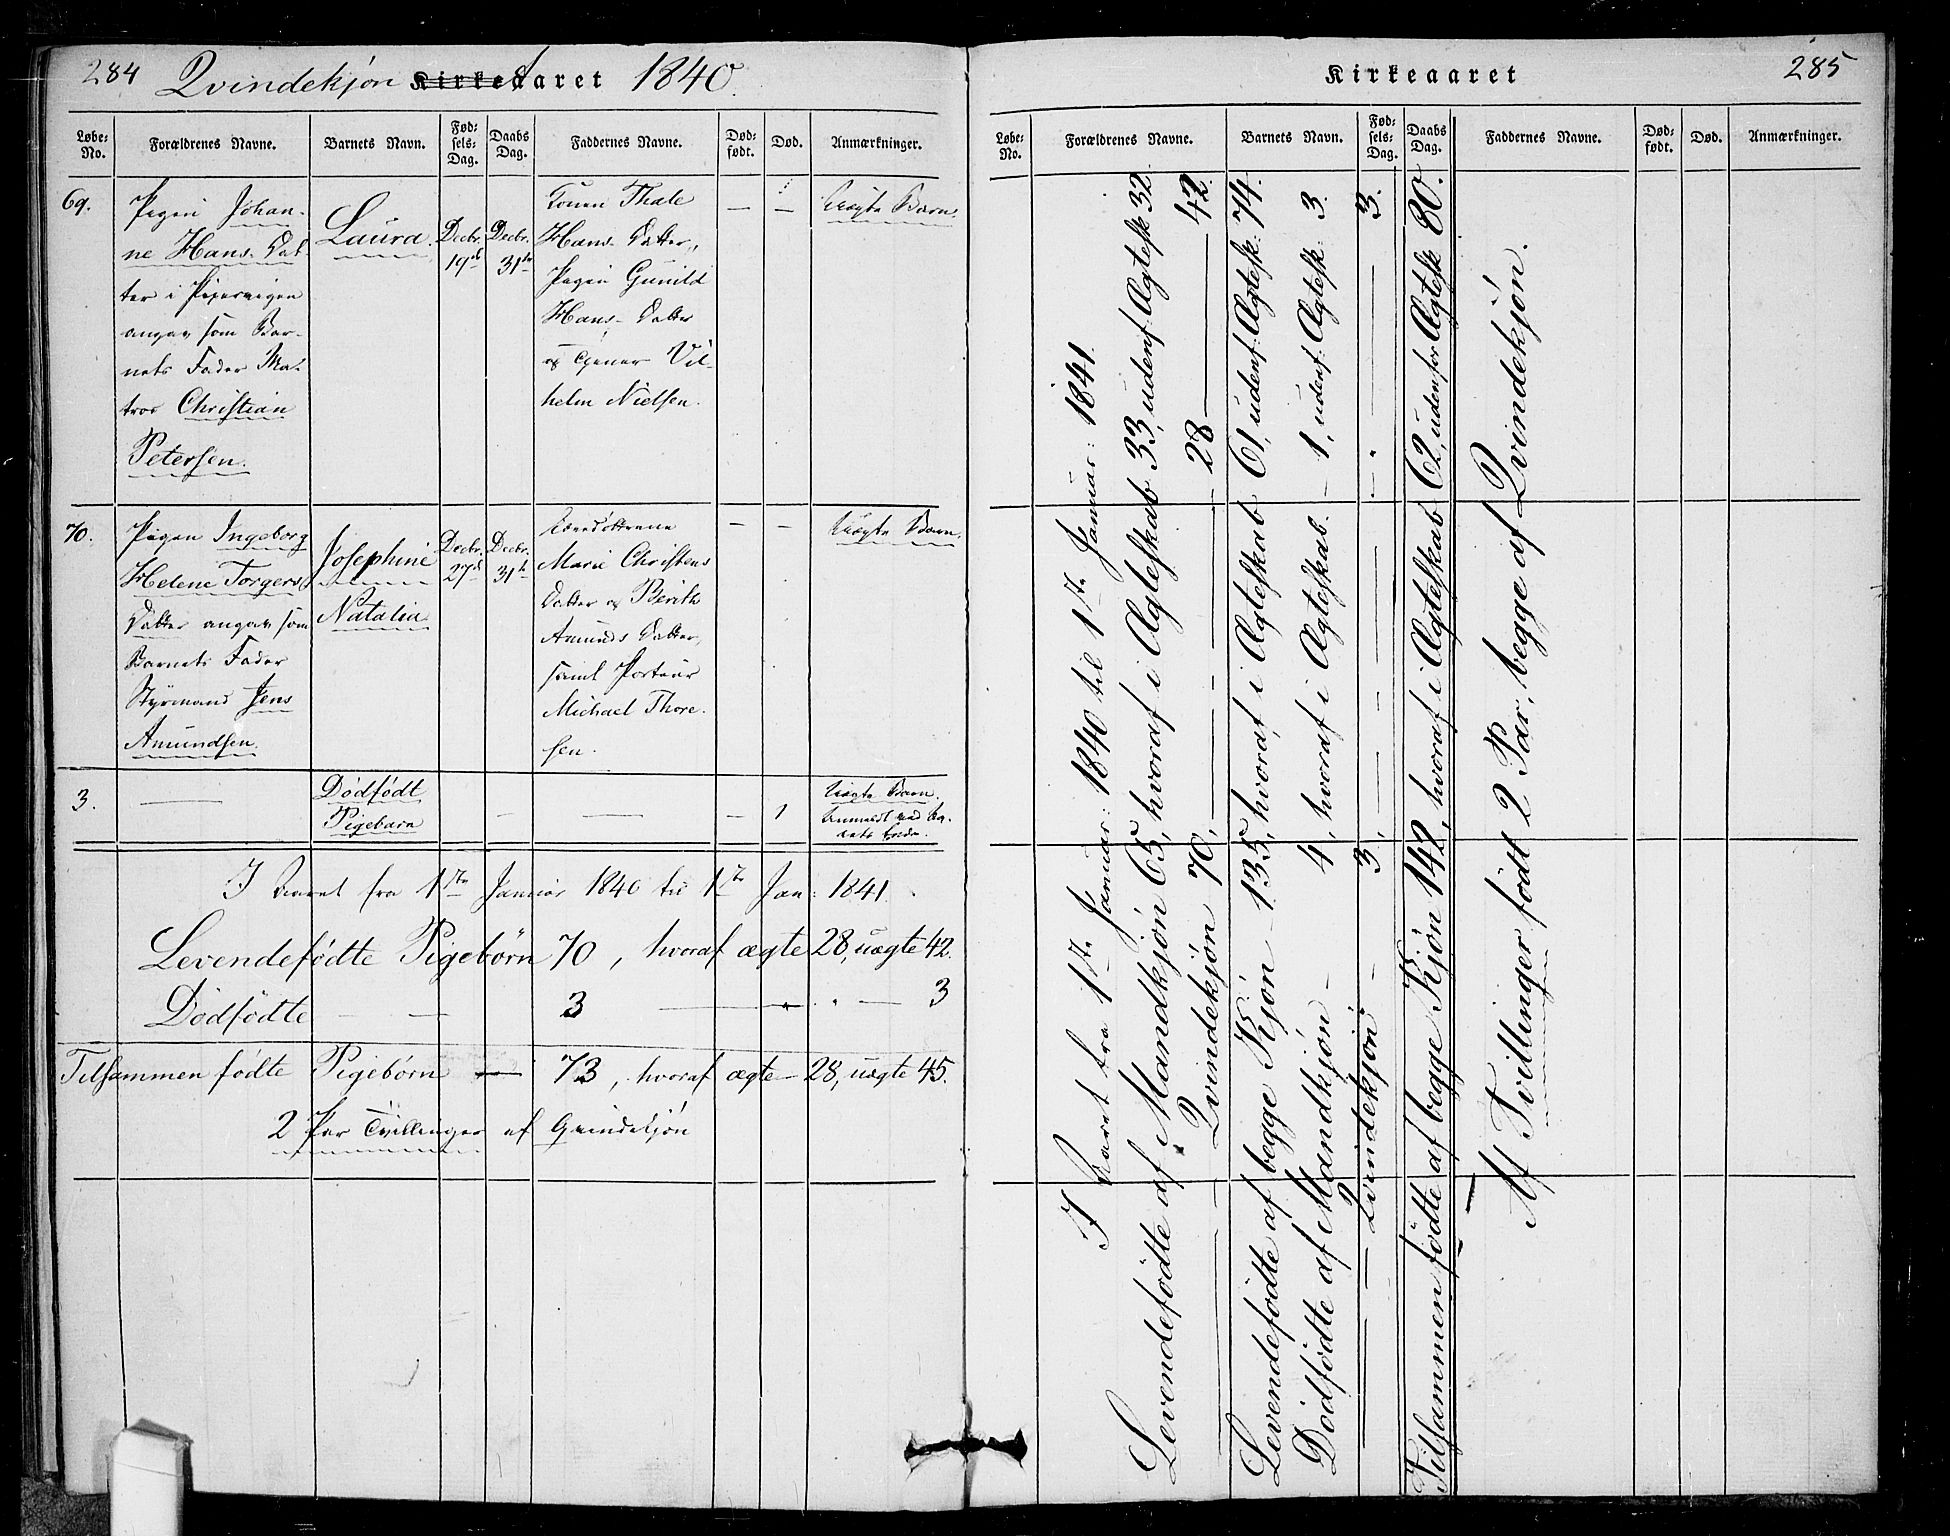 284 Qvindekjøn Kirkeaaret 1840.
Løbe-No. Forældrenes Navne. Barnets Navn. Fødsels-Dag. Daabs Dag. Faddernes Navne. Dødfødt. Død. Anmærkninger.
69.
Pigen Johan-
ne Hans-Dat-
ter i Pipervigen
angav som Bar-
nets Fader Ma-
tros Christian
Petersen.
Laura.
Decbr.
19de
Decbr.
31te
Konen Thale
Hans-Datter,
Pigen Gunild
Hans-Datter
og Tjener Vil-
helm Nielsen.
— —
Uægte Barn.
70.
Pigen Ingeborg
Helene Torgers
Datter angav som
Barnets Fader
Styrmand Jens
Amundsen.
Josephine
Natalia
Decbr.
27de
Decbr.
31te
Marie Christens
Datter og Berith
Amunds Datter,
samt Porteur
Michael Thore-
sen.
— —
Uægte Barn.
3.
—
Dødfødt
Pigebarn
— — — — 1
Uægte Barn.
I Aaret fra 1ste Januar 1840 til 1ste Jan: 1841.
Levendefødte Pigebørn 70, hvoraf ægte 28, uægte 42.
Dødfødte — — 3 — " " — 3
Tilsammen fødte Pigebørn — 73, hvoraf ægte — 28, uægte 45.
2 Par Tvillinger af Qvindekjøn
Kirkeaaret 285
Løbe-No. Forældrenes Navne. Barnets Navn. Fødsels-Dag. Daabs Dag. Faddernes Navne. Dødfødt. Død. Anmærkninger.
I Aaret fra 1ste Januar: 1840 til 1ste Januar: 1841.
Levendefødte af Mandkjøn 65, hvoraf i Ægteskab 33, udenf: Ægtesk 32.
— — Qvindekjøn 70, — — — 28 — 42.
Levendefødte af begge Kjøn — 135, hvoraf i Ægteskab 61, udenf: Ægtesk: 74.
Dødfødte af Mandkjøn — 4, hvoraf i Ægteskab. — 1, udenf: Ægtesk: 3.
— — Qvindekjøn — 3, — — — " — 3.
Tilsammen fødte af begge Kjøn 142, hvoraf i Ægteskab 62, udenfor Ægtesk 80.
Af Tvillinger født 2 Par, begge af Qvindekjøn.